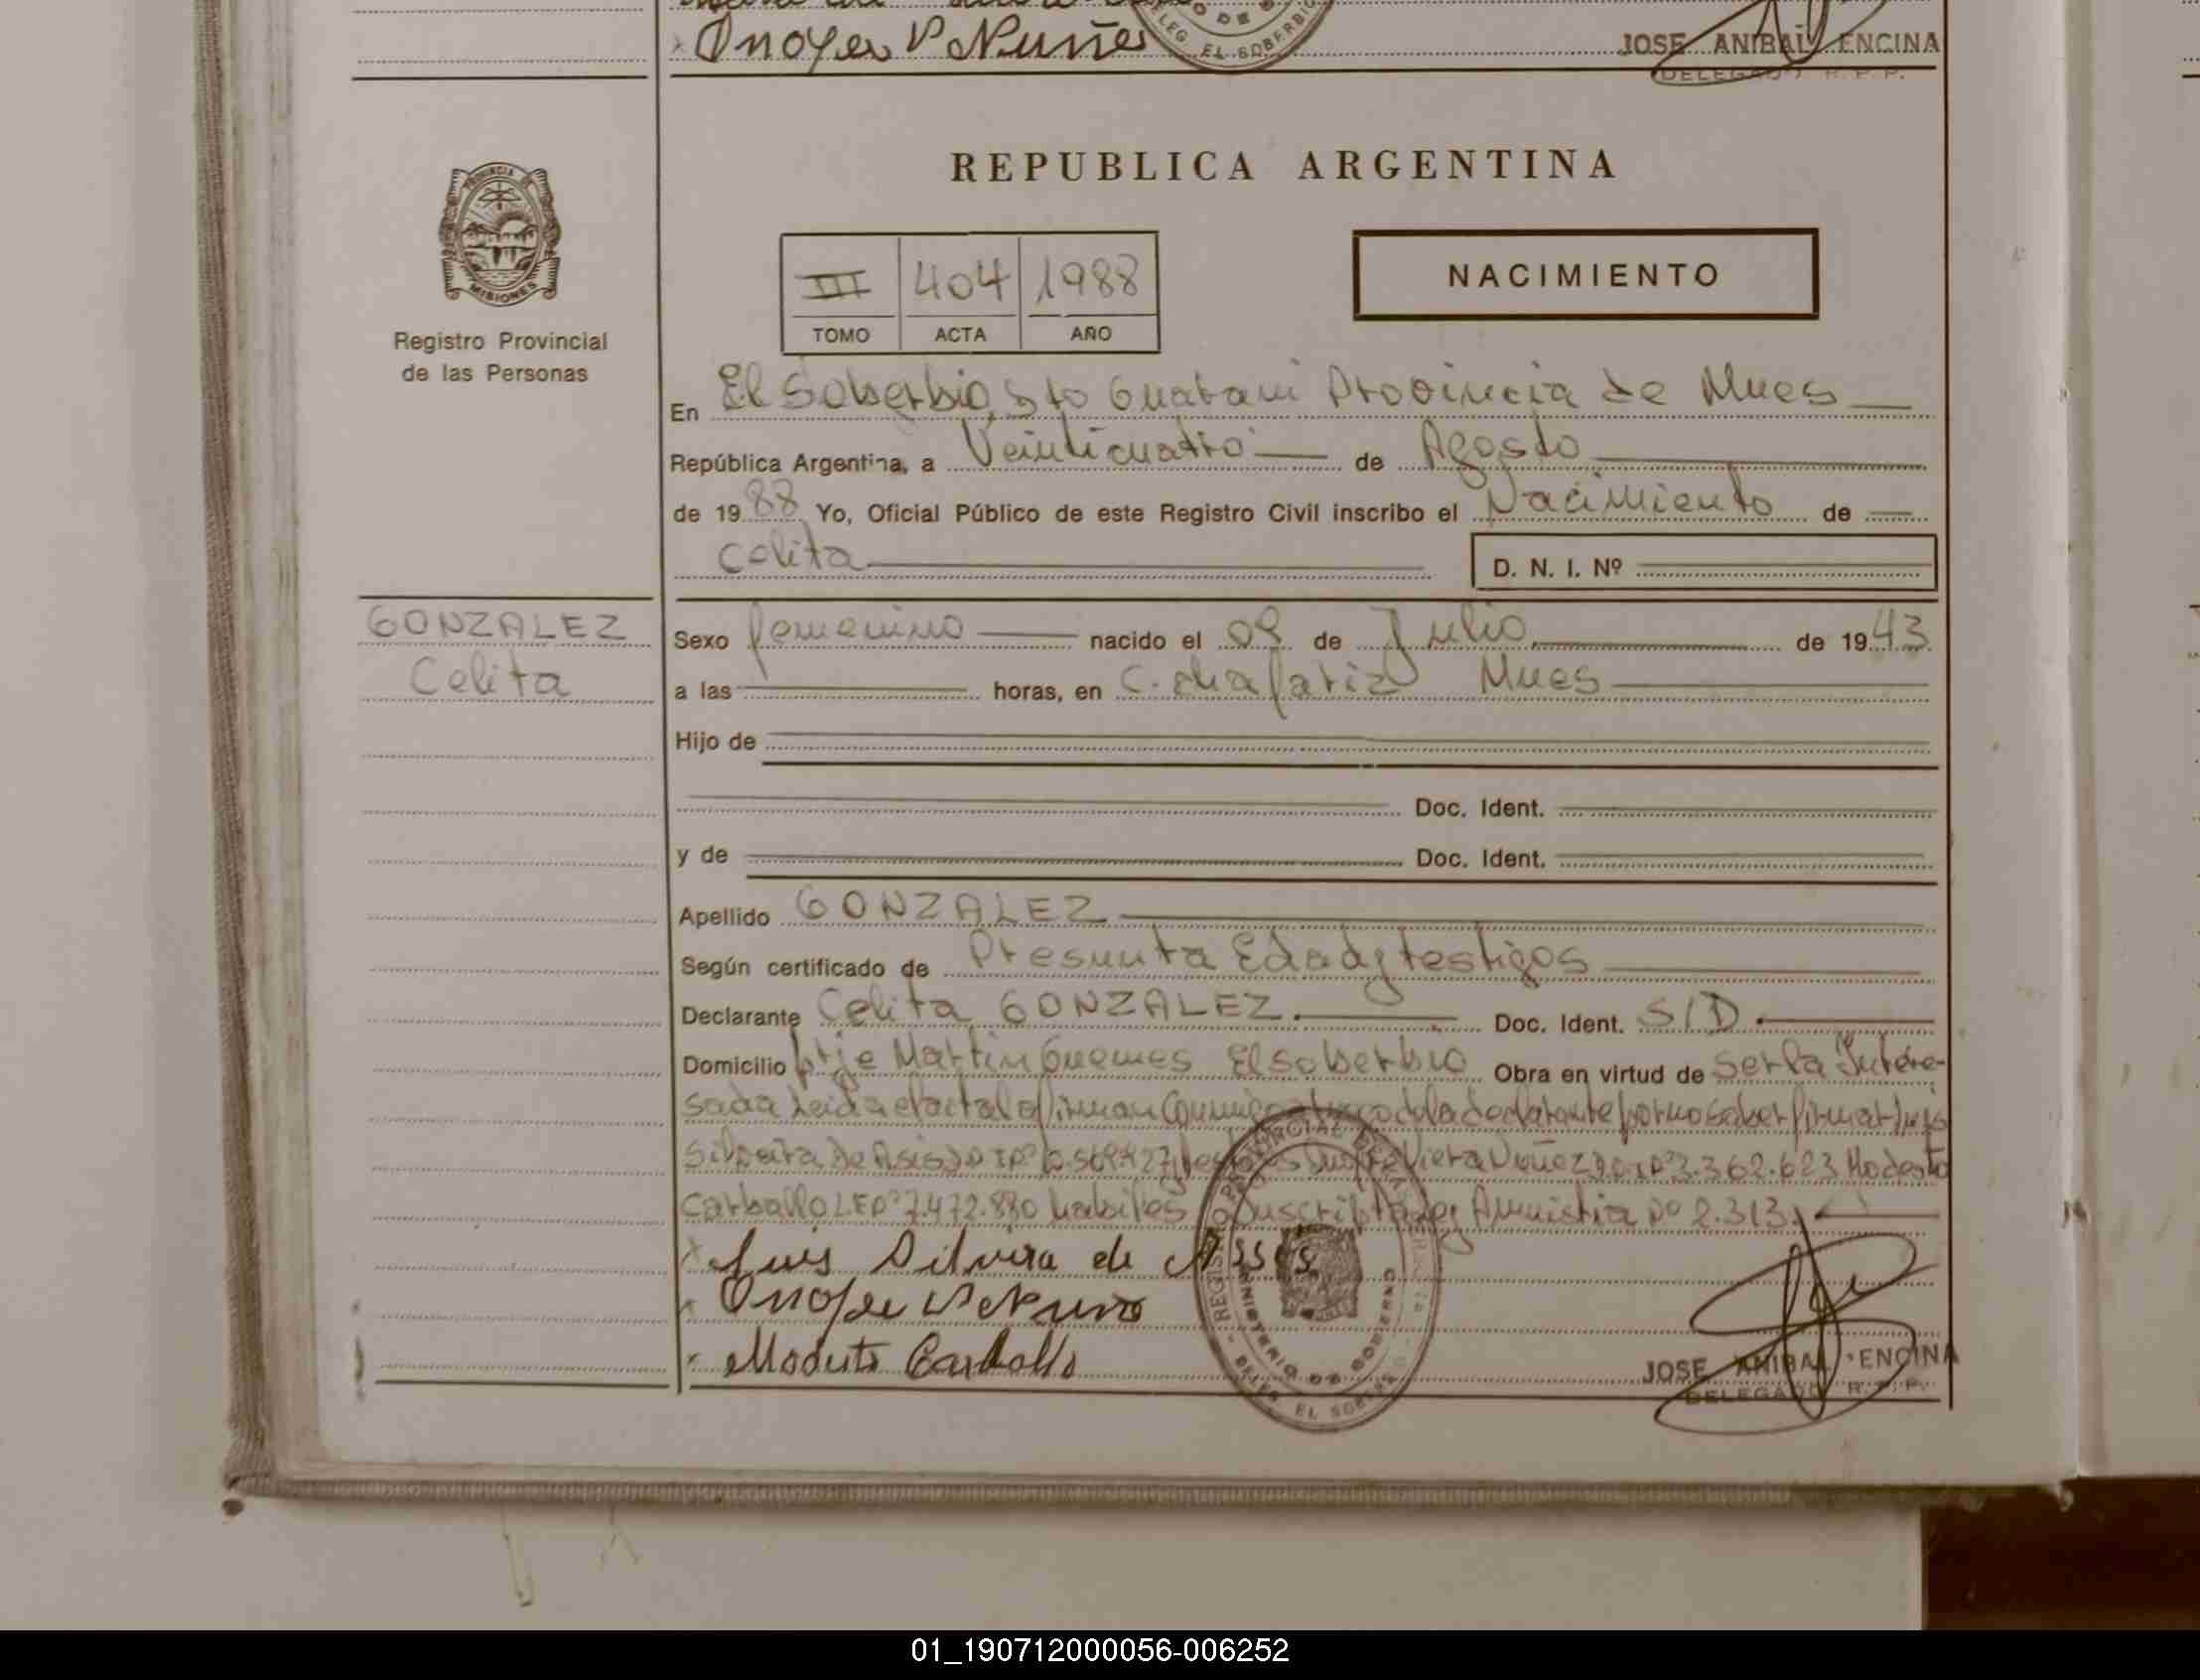 Onofer V Nuñes
LEG EL SOBERBIO
JOSE ANIBAL ENCINA
DELEGADO R. P. P.
PROVINCIA DE
MISIONES
Registro Provincial
de las Personas
REPUBLICA ARGENTINA
III 404 1988
TOMO ACTA AÑO
NACIMIENTO
En El Soberbio, Dto Guarani Provincia de Mnes
República Argentina, a Veinticuatro de Agosto
de 1988 Yo, Oficial Público de este Registro Civil inscribo el Nacimiento de
Celita D. N. I. Nº
GONZALEZ
Celita
Sexo femenino nacido el 09 de Julio de 1943
a las horas, en C. chafariz Mnes
Hijo de
Doc. Ident.
y de Doc. Ident.
Apellido GONZALEZ
Según certificado de Presunta Edad y testigos
Declarante Celita GONZALEZ. Doc. Ident. S/D.
Domicilio Prje Martin Guemes El soberbio Obra en virtud de Ser la Intere-
sada Leida el acta la firman Conmigo a ruego de la declarante por no saber firmar Luis
Silveira de Asis testigos Viera Nuñez 3.362.623 Modesto
Carballo L.E Nº 7.472.830 habiles Suscripta Ley Amnistia Nº 2.313.
x Luis Silveira de Assis
x Onofer V Nuñes
x Modesto Carballo
REGISTRO PROVINCIAL DE LAS PERSONAS
MINISTERIO DE GOBIERNO
DELEG. EL SOBERBIO
JOSE ANIBAL ENCINA
DELEGADO R. P. P.
01_190712000056-006252